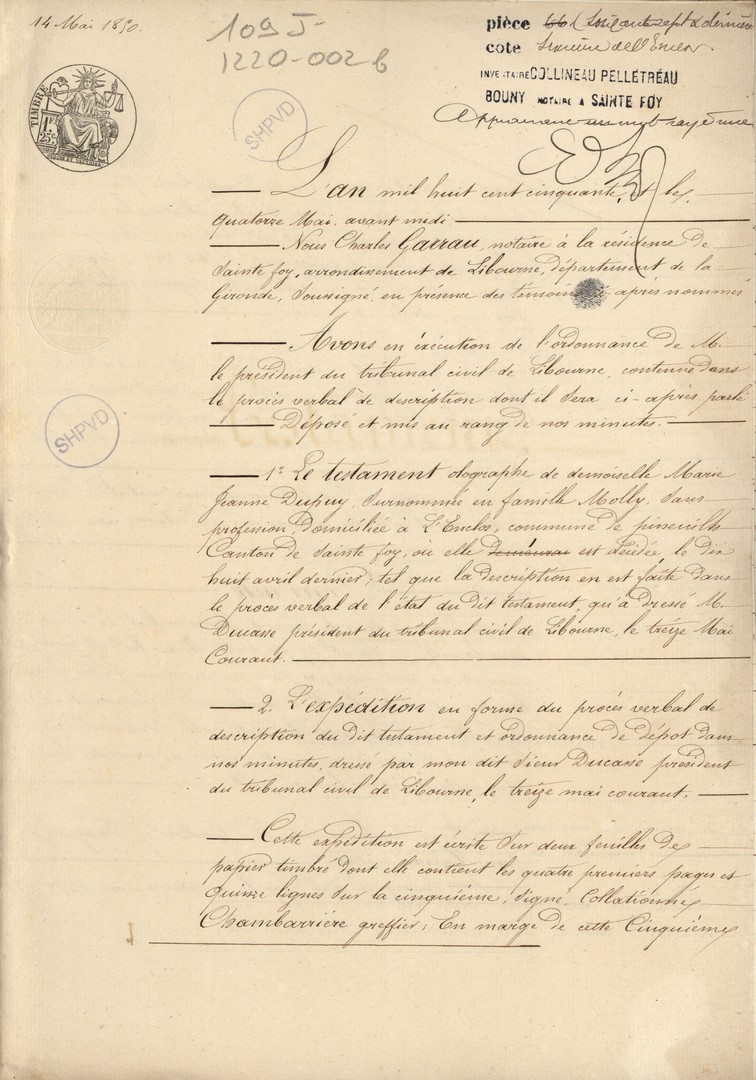 14 Mai 1850.
109 J-
1220-002 b
pièce soixante sept & dernière
cote
INVENTAIRE COLLINEAU PELLÉTRÉAU
BOUNY NOTAIRE A SAINTE FOY
TIMBRE
1 F.
25 c.
SHPVD
L'an mil huit cent cinquante, et le
quatorze Mai avant midi.
Nous Charles Garrau, notaire à la résidence de
Sainte foy, arrondissement de Libourne, département de la
Gironde, soussigné, en présence des témoins ci-après nommés
Avons en exécution de l'ordonnance de M.
le président du tribunal civil de Libourne, contenue dans
le procès verbal de description dont il sera ci-après parlé
Déposé et mis au rang de nos minutes.
SHPVD
1° Le testament olographe de demoiselle Marie
Jeanne Dupuy, surnommée en famille Molly, sans
profession, domiciliée à L'Enclos, commune de pineuilh
Canton de Sainte foy, où elle est décédée, le dix
huit avril dernier; tel que la description en est faite dans
le procès verbal de l'état du dit testament, qu'a dressé M.
Ducasse président du tribunal civil de Libourne, le treize Mai
Courant.
2. L'expédition en forme du procès verbal de
description du dit testament et ordonnance de dépôt dans
nos minutes, dressé par mon dit sieur Ducasse président
du tribunal civil de Libourne, le treize mai courant.
Cette expédition est écrite sur deux feuilles de
papier timbré dont elle contient les quatre premiers pages et
quinze lignes sur la cinquième, signé, Collationné,
Chambarrière greffier; En marge de cette Cinquième